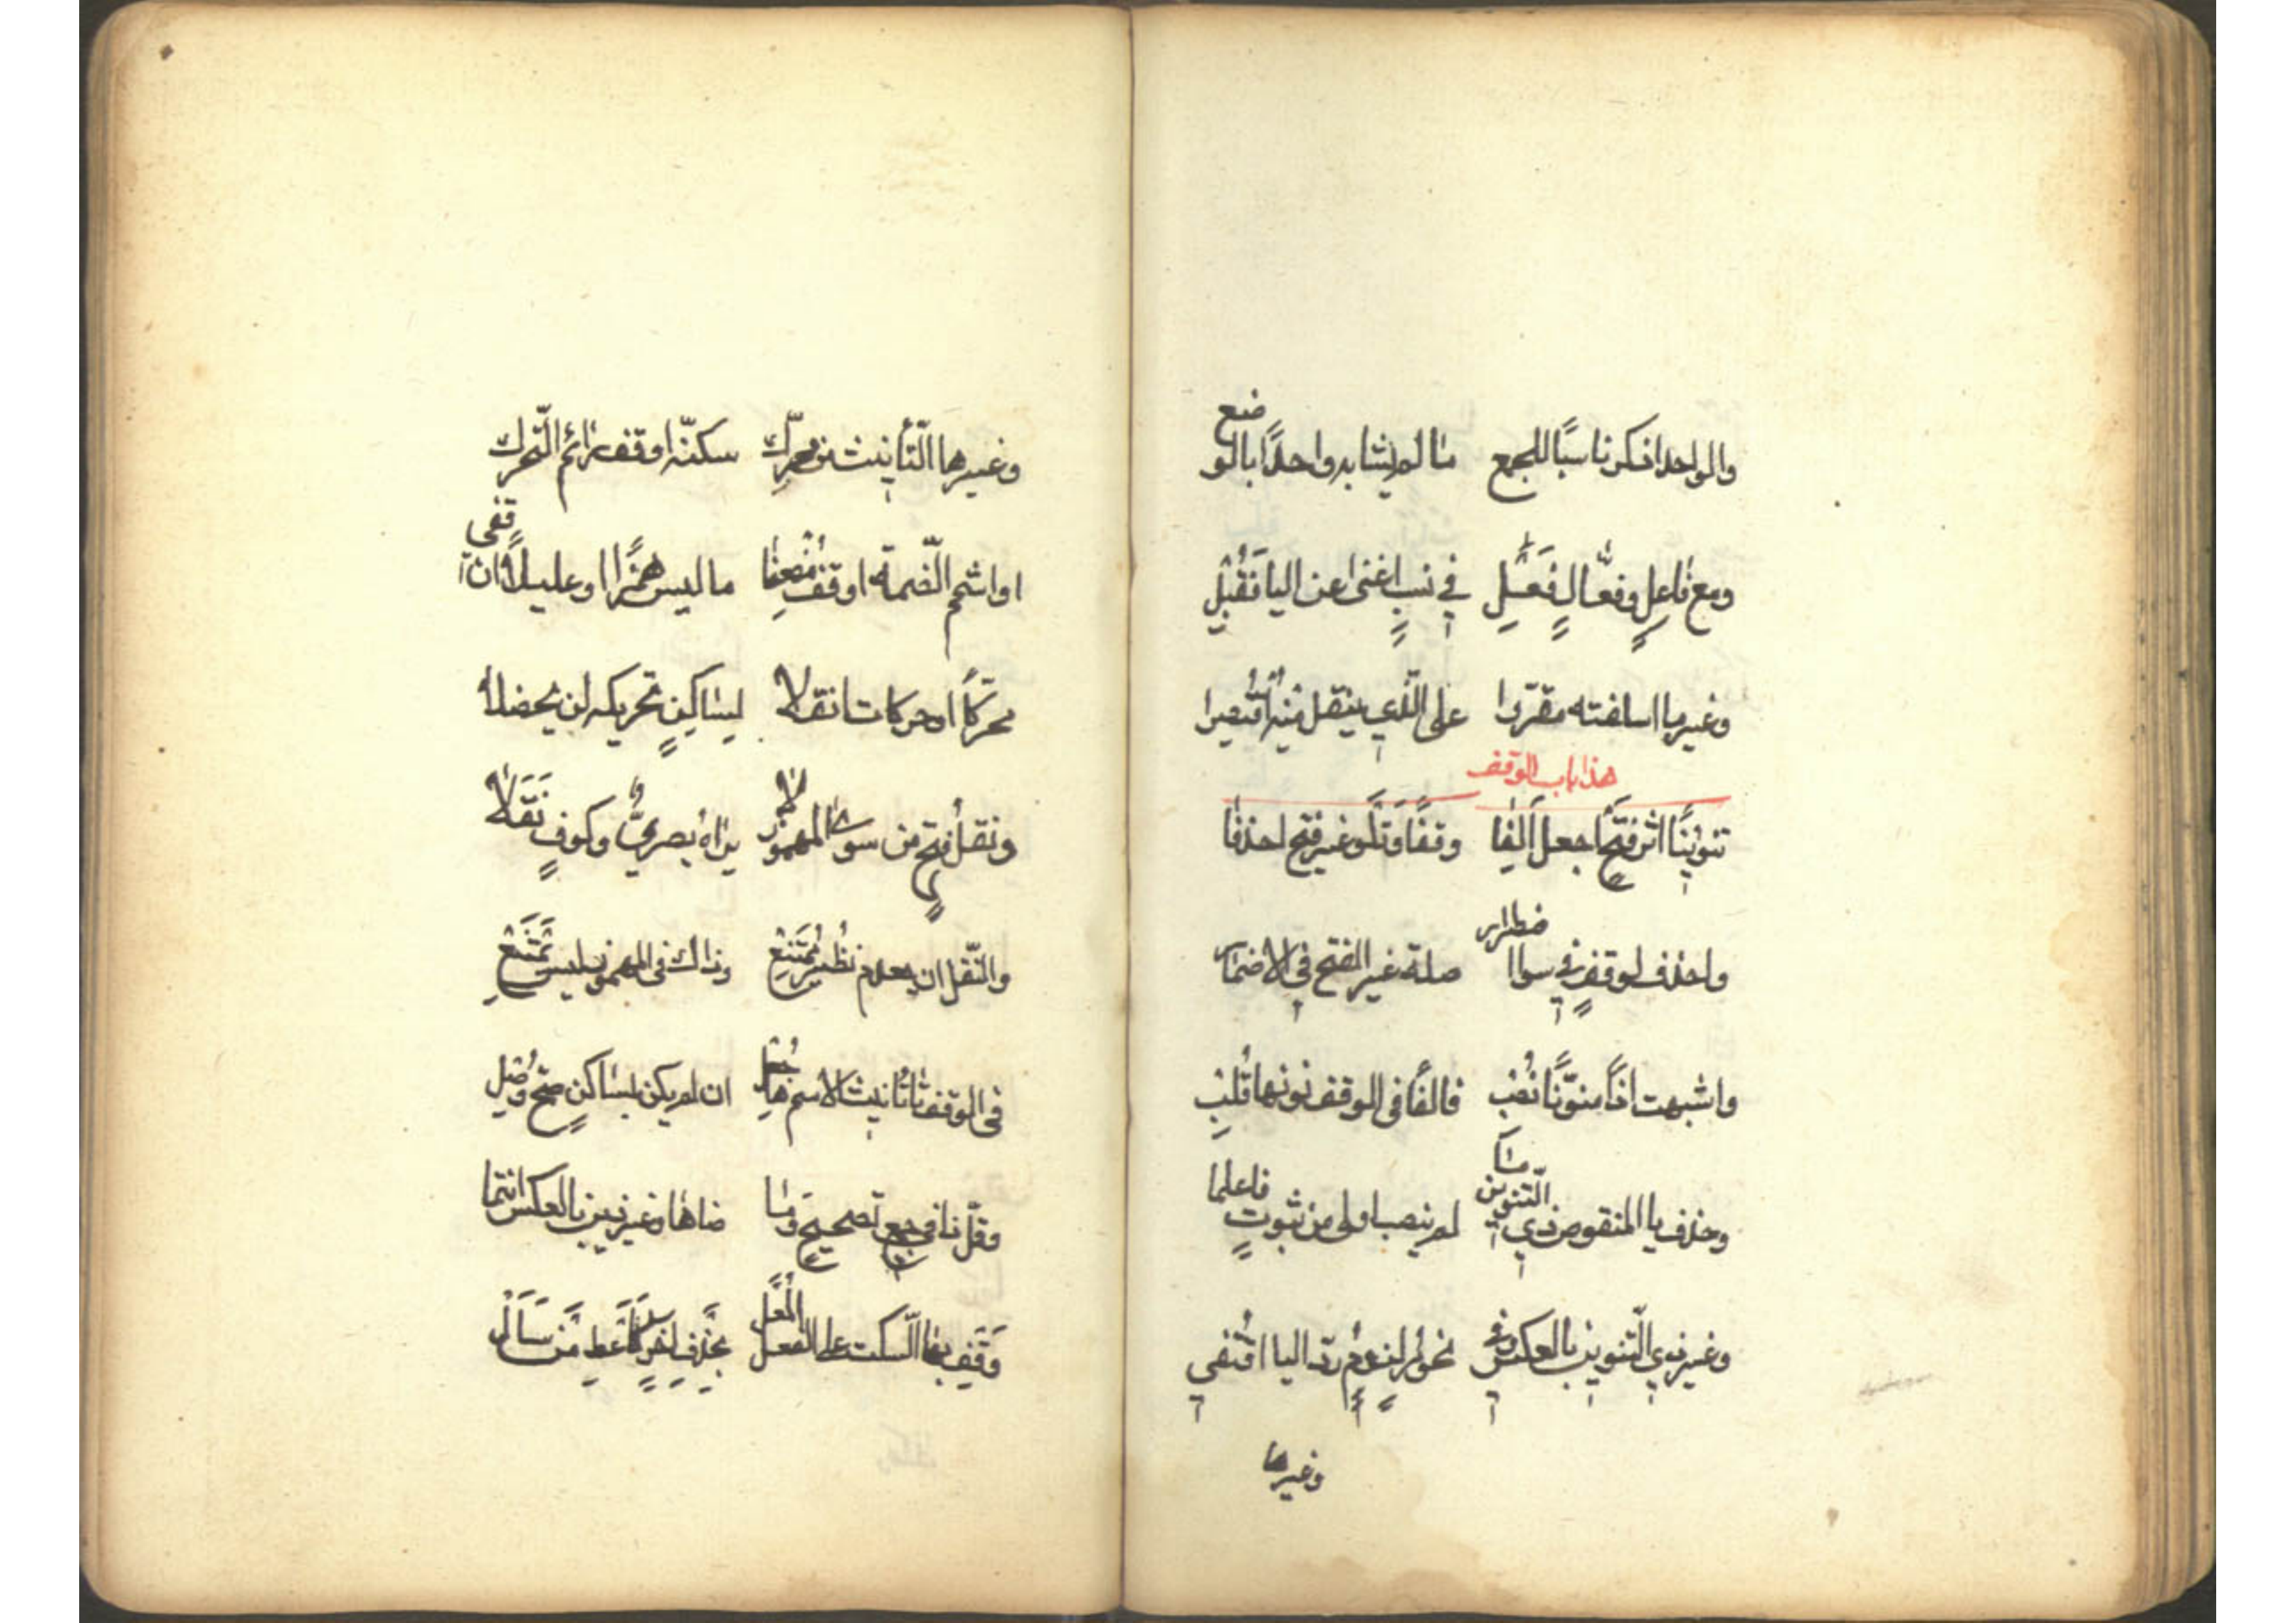 والواحد اذكر ناسبًا للجمع ما لم يشابه واحدًا بالوضع
ومع فاعلٍ وفعّالٍ فَعِلِ في نسبٍ اغنى عن اليا فَقُبِلْ
وغير ما اسلفته مقرّرا على الّذي ينقل منه اقتصرا
هذا باب الوقف
تنوينًا اثر فتحٍ اجعل اَلِفا وقفًا وتلو غير فتح احذفا
واحذف لوقفٍ في سوا اضطرار صلة غير الفتح في الاضمار
واشبهت اذًا منوّنًا نُصِب فالفًا في الوقف نونها قُلِب
وحذف يا المنقوص ذي التّنوين مَا لم ينصب اولى من ثبوتٍ فاعلما
وغير ذي التّنوين بالعكس وفي نحو مُرٍ لزوم ردّ اليا اقتفي
وغيرها
وغير ها التّأنيث من محرّك سكنّه او قف رائم التّحرك
او اشمم الضّمة او قف مُضعِفا ما ليس همزًا او عليلًا ان قفى
محركًا او حركات انقلا لساكنٍ تحريكه لن يحضلا
ونقل فتح من سوى المهموز لا يراه بصريٌّ وكوفٍ نَقَلا
والنّقل ان يعدم نظيرٌ ممتنِع وذاك في المهموز ليس يمتنع
في الوقف تا تانيث الاسم ها جُعِل ان لم يكن بساكنٍ صحّ وُصِل
وقلّ ذا في جمع تصحيحٍ وما ضاها وغير ذين بالعكس انتما
وَقِف بها السّكت على الفعل المُعَلّ بحذف اخرٍ كَاَعطِ مَن سَاَل